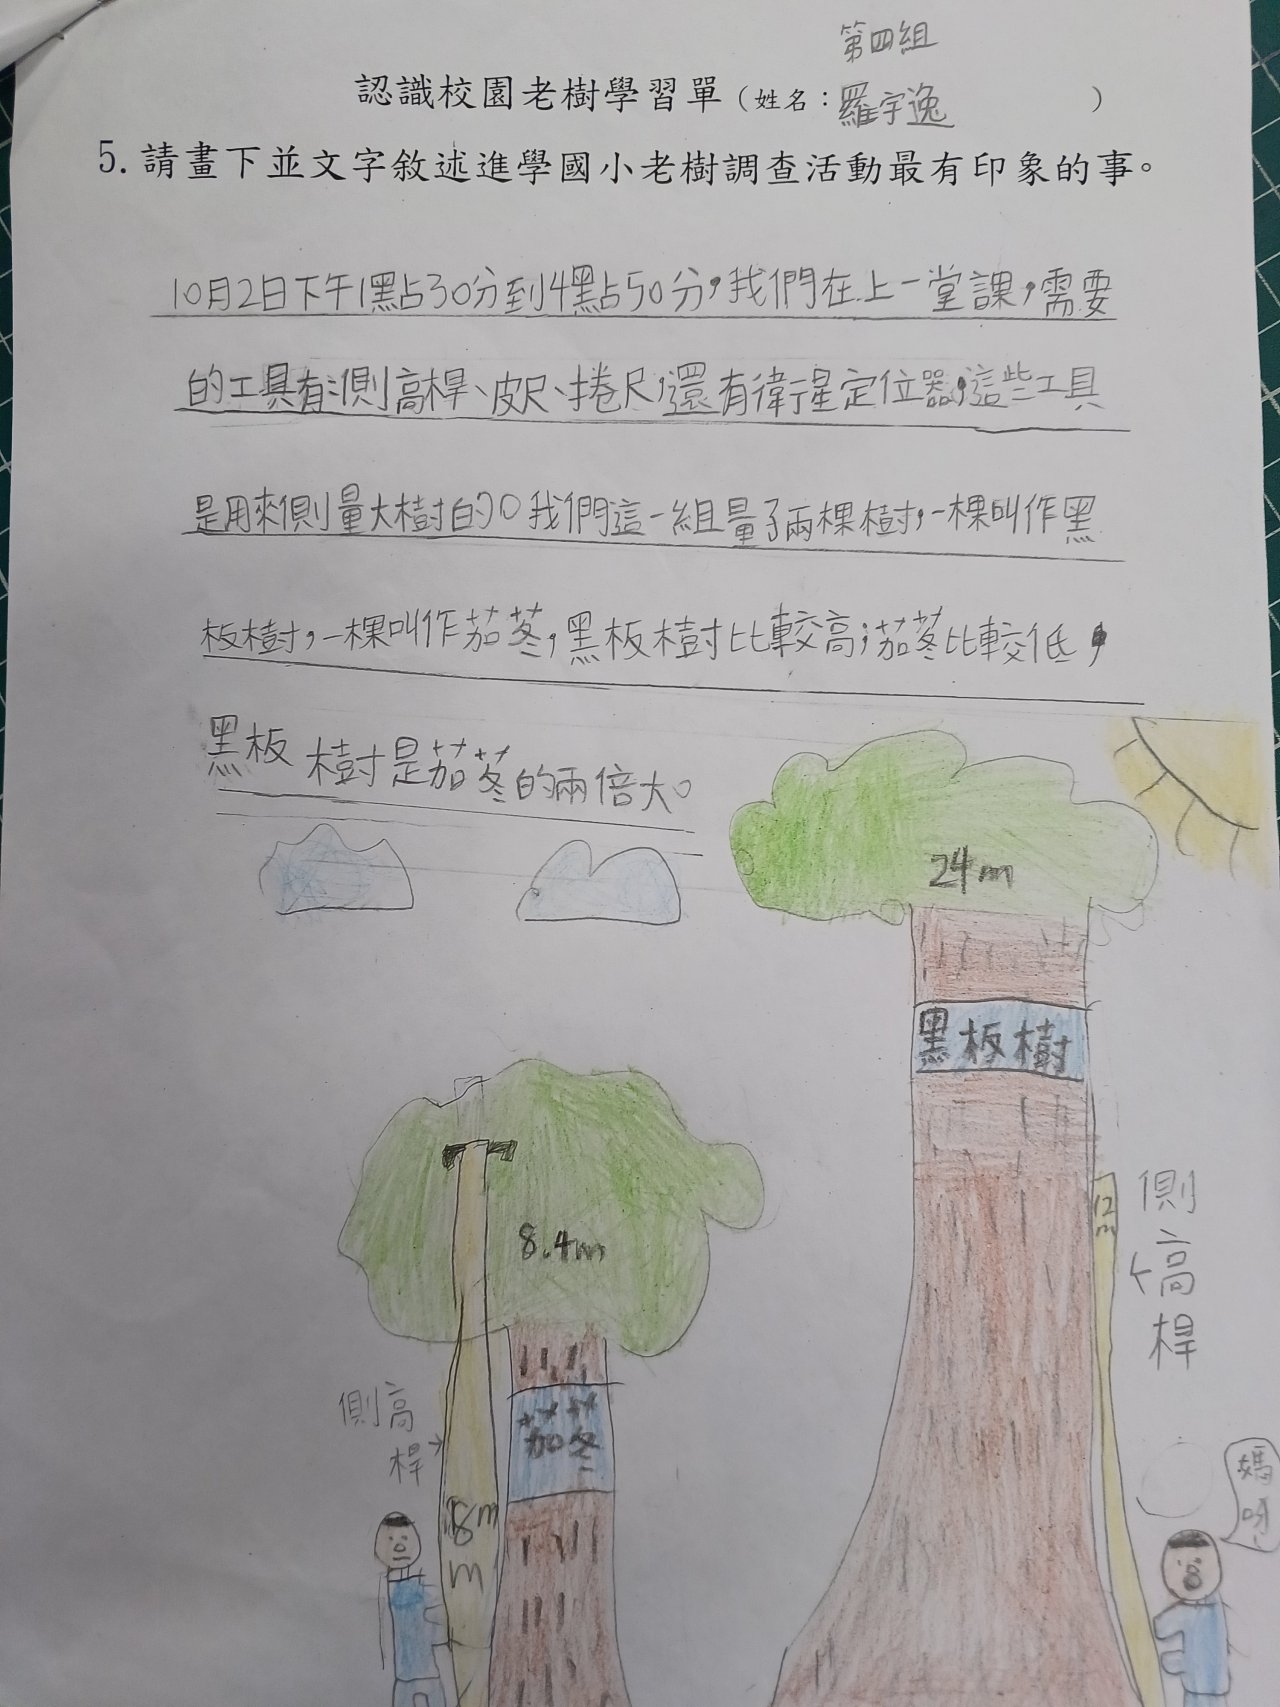 第四組
認識校園老樹學習單（姓名：羅宇逸）
5.請畫下並文字敘述進學國小老樹調查活動最有印象的事。
10月2日下午1點30分到4點50分，我們在上一堂課，需要
的工具有：側高桿、皮尺、捲尺，還有衛星定位器，這些工具
是用來側量大樹的。我們這一組量了兩棵樹，一棵叫作黑
板樹，一棵叫作茄苳，黑板樹比較高；茄苳比較低，
黑板樹是茄苳的兩倍大。
24m
黑板樹
12m
側高桿
8.4m
茄苳
側高桿
8m
媽呀